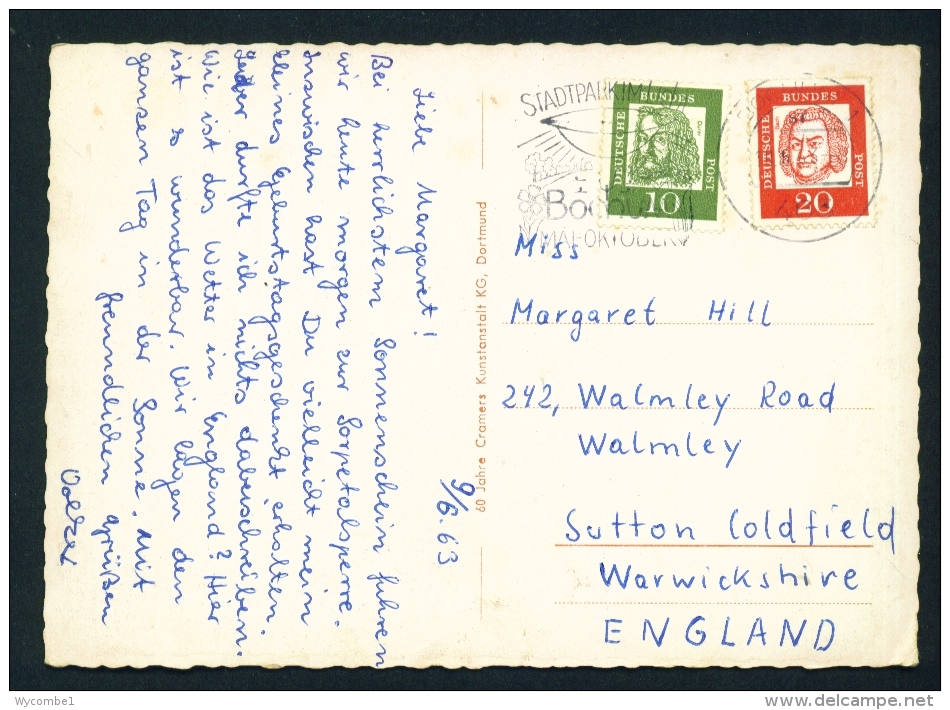 9/6.63
Liebe Margaret!
Bei herrlichstem Sonnenschein fuhren
wir heute morgen zur Sorpetalsperre.
Inzwischen hast Du vielleicht mein
kleines Geburtstagsgeschenk erhalten.
Leider durfte ich nichts dabeischreiben.
Wie ist das Wetter in England? Hier
ist es wunderbar. Wir lagen den
ganzen Tag in der Sonne. Mit
freundlichen Grüßen
Volker
60 Jahre Cramers Kunstanstalt KG, Dortmund
STADTPARK IM
MAI-OKTOBER
DEUTSCHE BUNDES POST
10
DEUTSCHE BUNDES POST
20
Miss
Margaret Hill
242, Walmley Road
Walmley
Sutton Coldfield
Warwickshire
ENGLAND
Wycombe1
www.delcampe.net